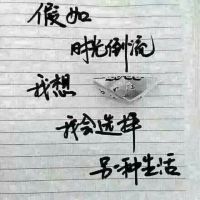 假如
时光倒流
我想
我会选择
另一种生活